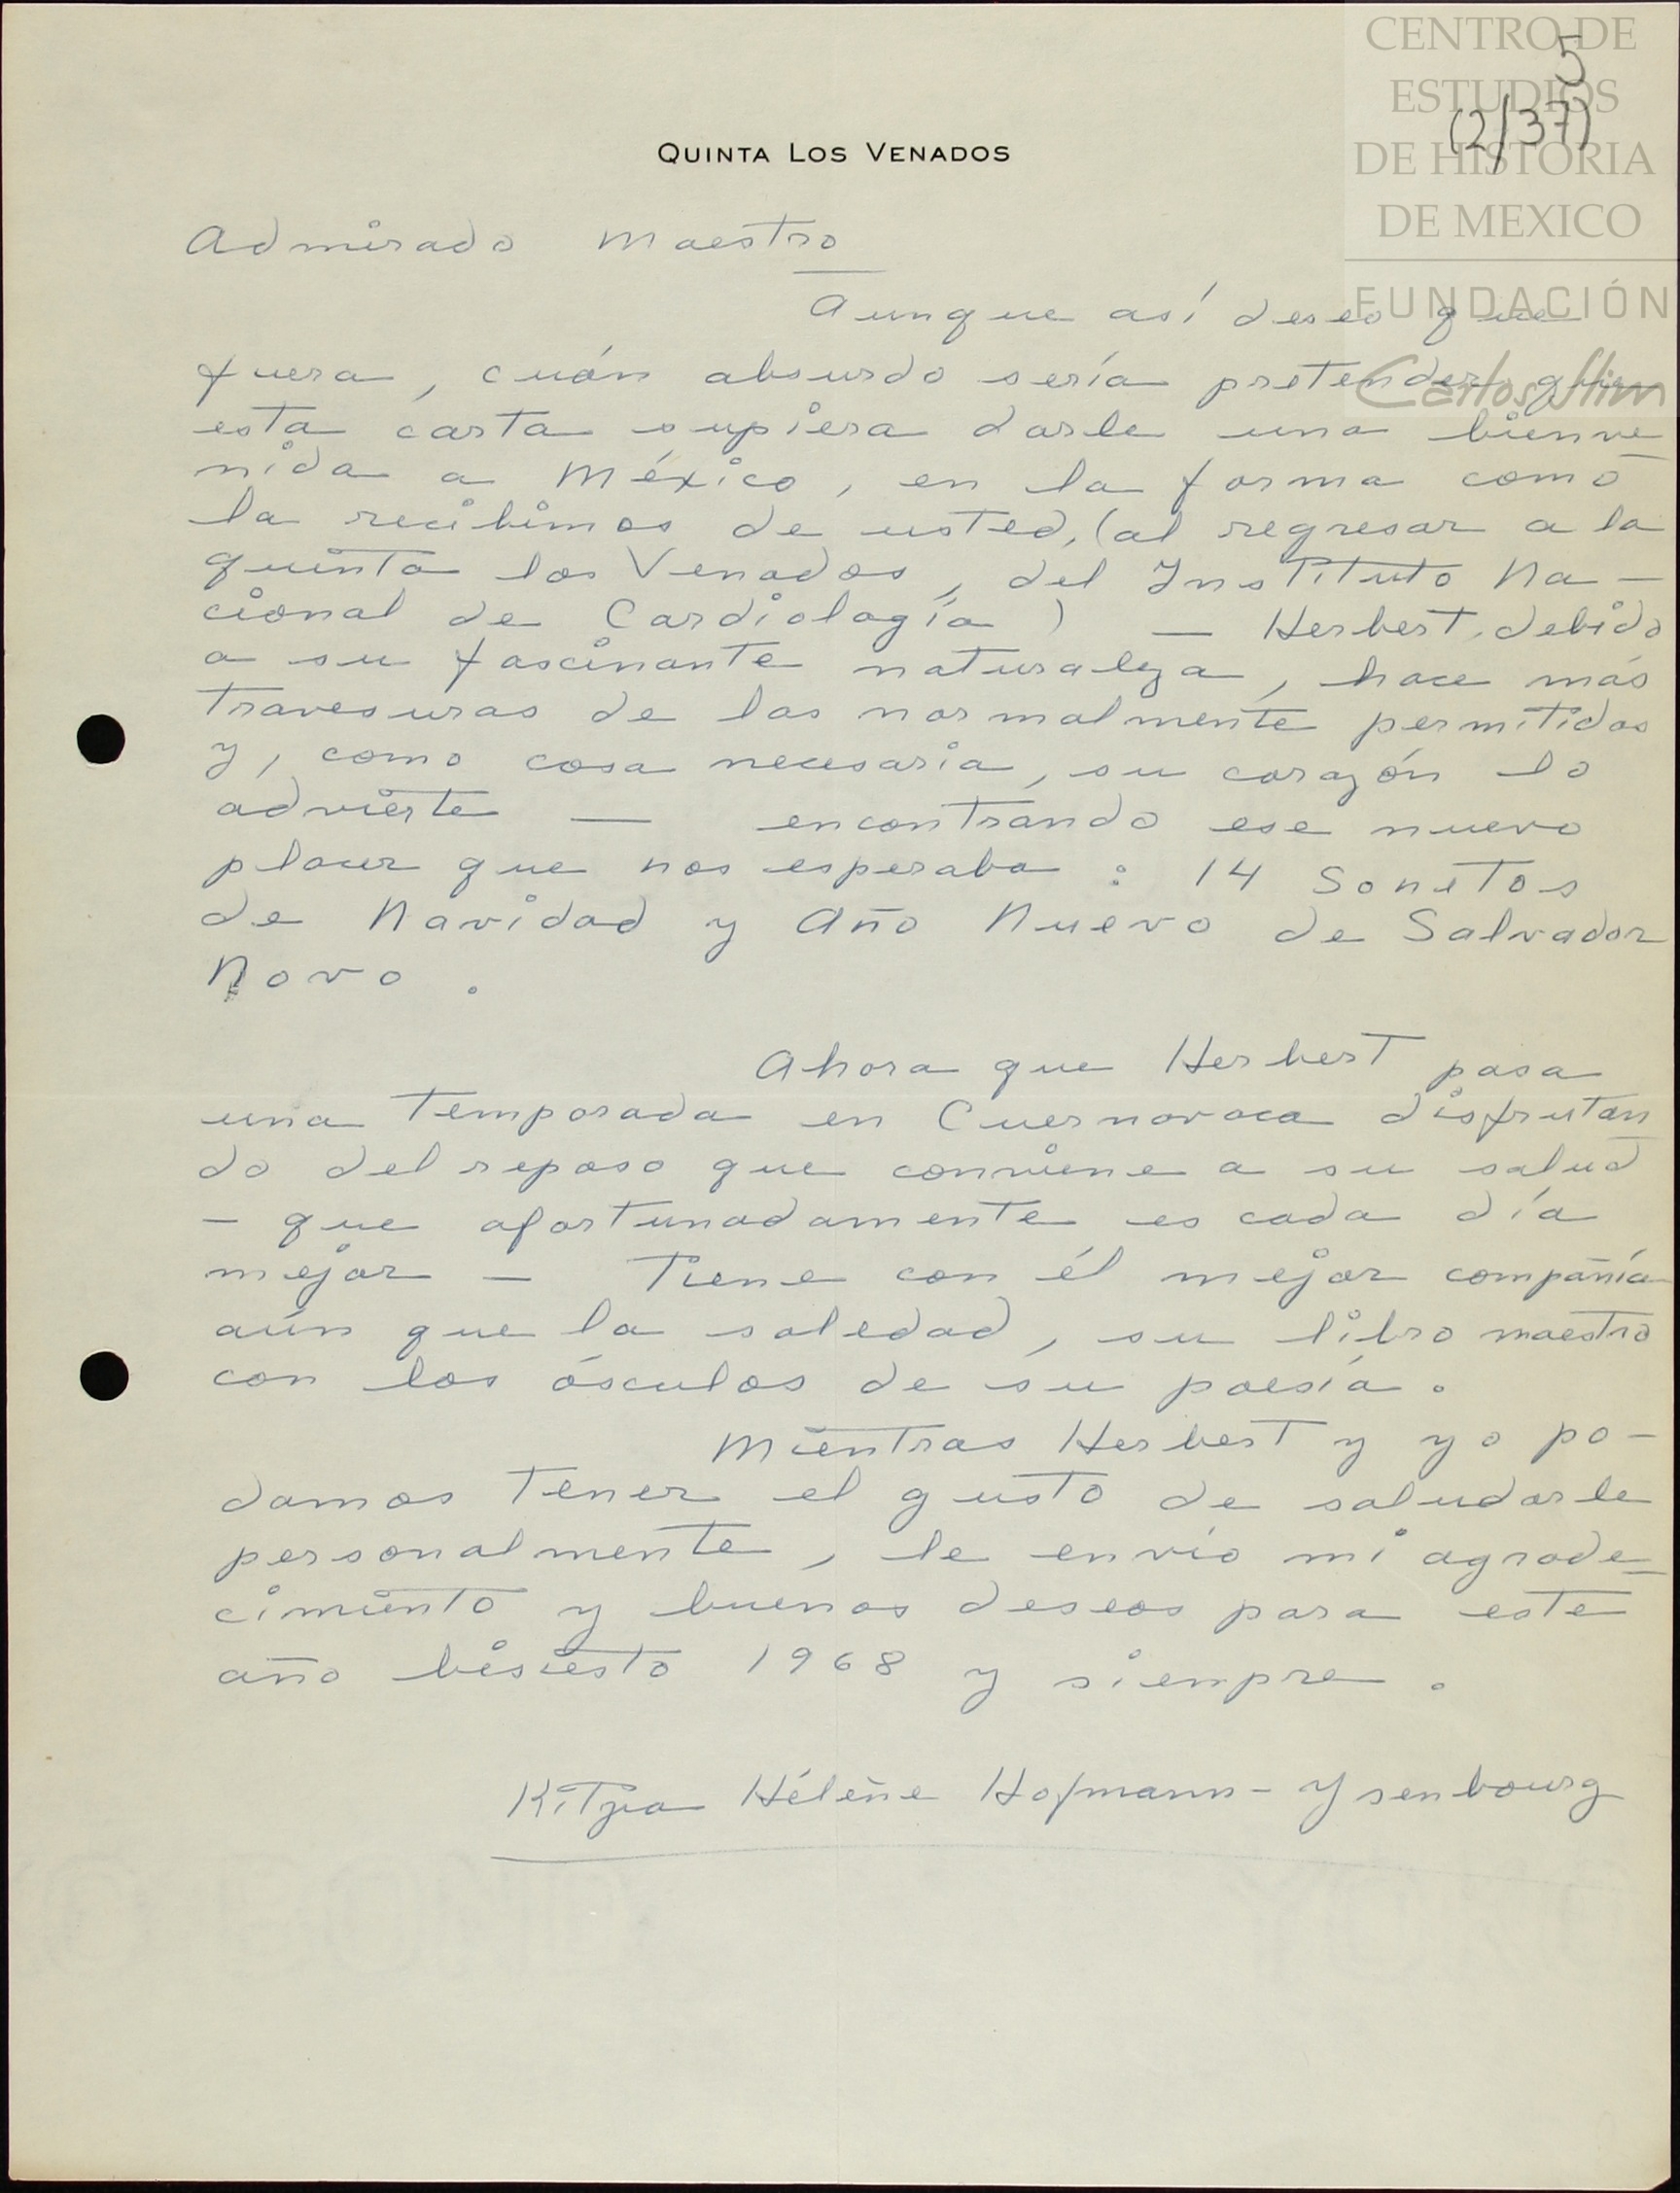 CENTRO DE
ESTUDIOS
DE HISTORIA
DE MEXICO
FUNDACIÓN
Carlos Slim
5
(2/37)
QUINTA LOS VENADOS
Admirado Maestro
Aunque así deseo que
fuera, cuán absurdo sería pretender que
esta carta supiera darle una bienve
nida a México, en la forma como
la recibimos de usted, (al regresar a la
quinta los Venados, del Instituto Na-
cional de Cardiología) — Herbert, debido
a su fascinante naturaleza, hace más
travesuras de las normalmente permitidas
y, como cosa necesaria, su corazón lo
advierte — encontrando ese nuevo
placer que nos esperaba: 14 Sonetos
de Navidad y Año Nuevo de Salvador
Novo.
Ahora que Herbert pasa
una temporada en Cuernavaca disfrutan
do del reposo que conviene a su salud
- que afortunadamente es cada día
mejor - tiene con él mejor compañía
aún que la soledad, su libro maestro
con los ósculos de su poesía.
Mientras Herbert y yo po-
damos tener el gusto de saludarle
personalmente, le envío mi agrade=
cimiento y buenos deseos para este
año bisiesto 1968 y siempre.
Kitzia Hélène Hofmann-Ysenbourg